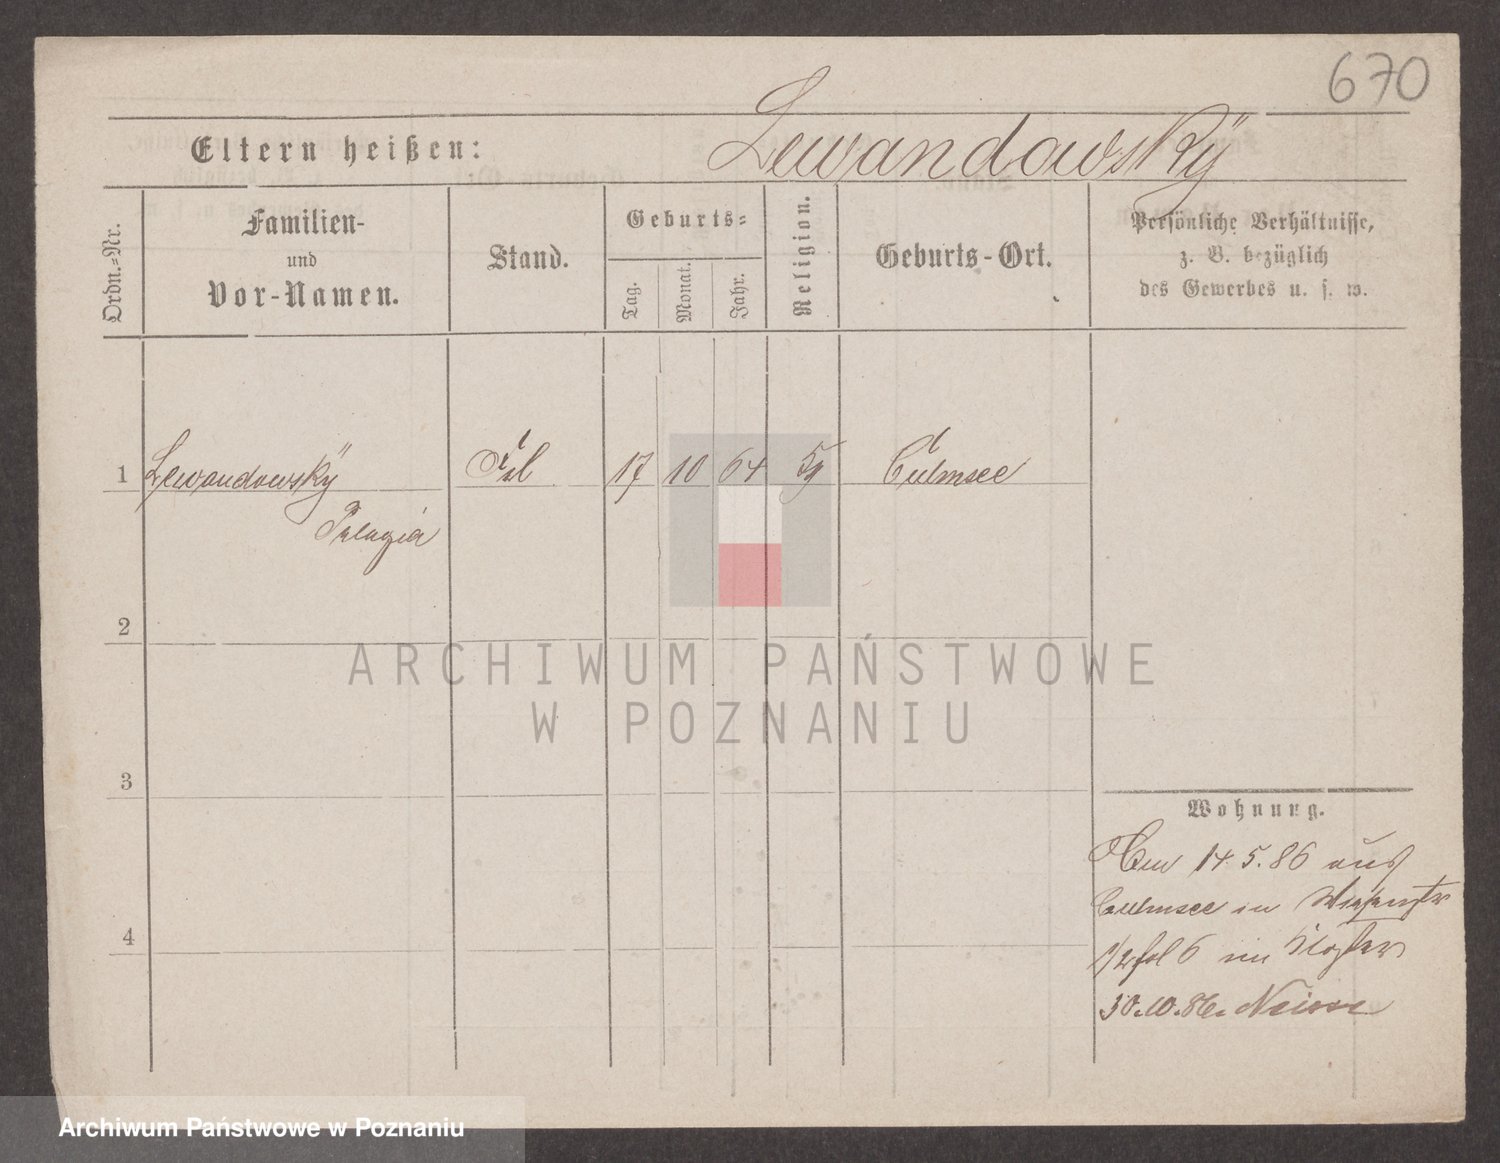 670
Eltern heißen: Lewandowskÿ
Ordn.-Nr.
Familien-
und
Vor-Namen.
Stand.
Geburts-
Tag.
Monat.
Jahr.
Religion.
Geburts-Ort.
Persönliche Verhältnisse,
z. B. bezüglich
des Gewerbes u. s. w.
1 Lewandowskÿ 17 10 64 Culmsee
Pelagia
2
3
4
ARCHIWUM PAŃSTWOWE
W POZNANIU
Wohnung.
14.5.86 aus
Culmsee in
6 im
30.10.86. Neisse
Archiwum Państwowe w Poznaniu